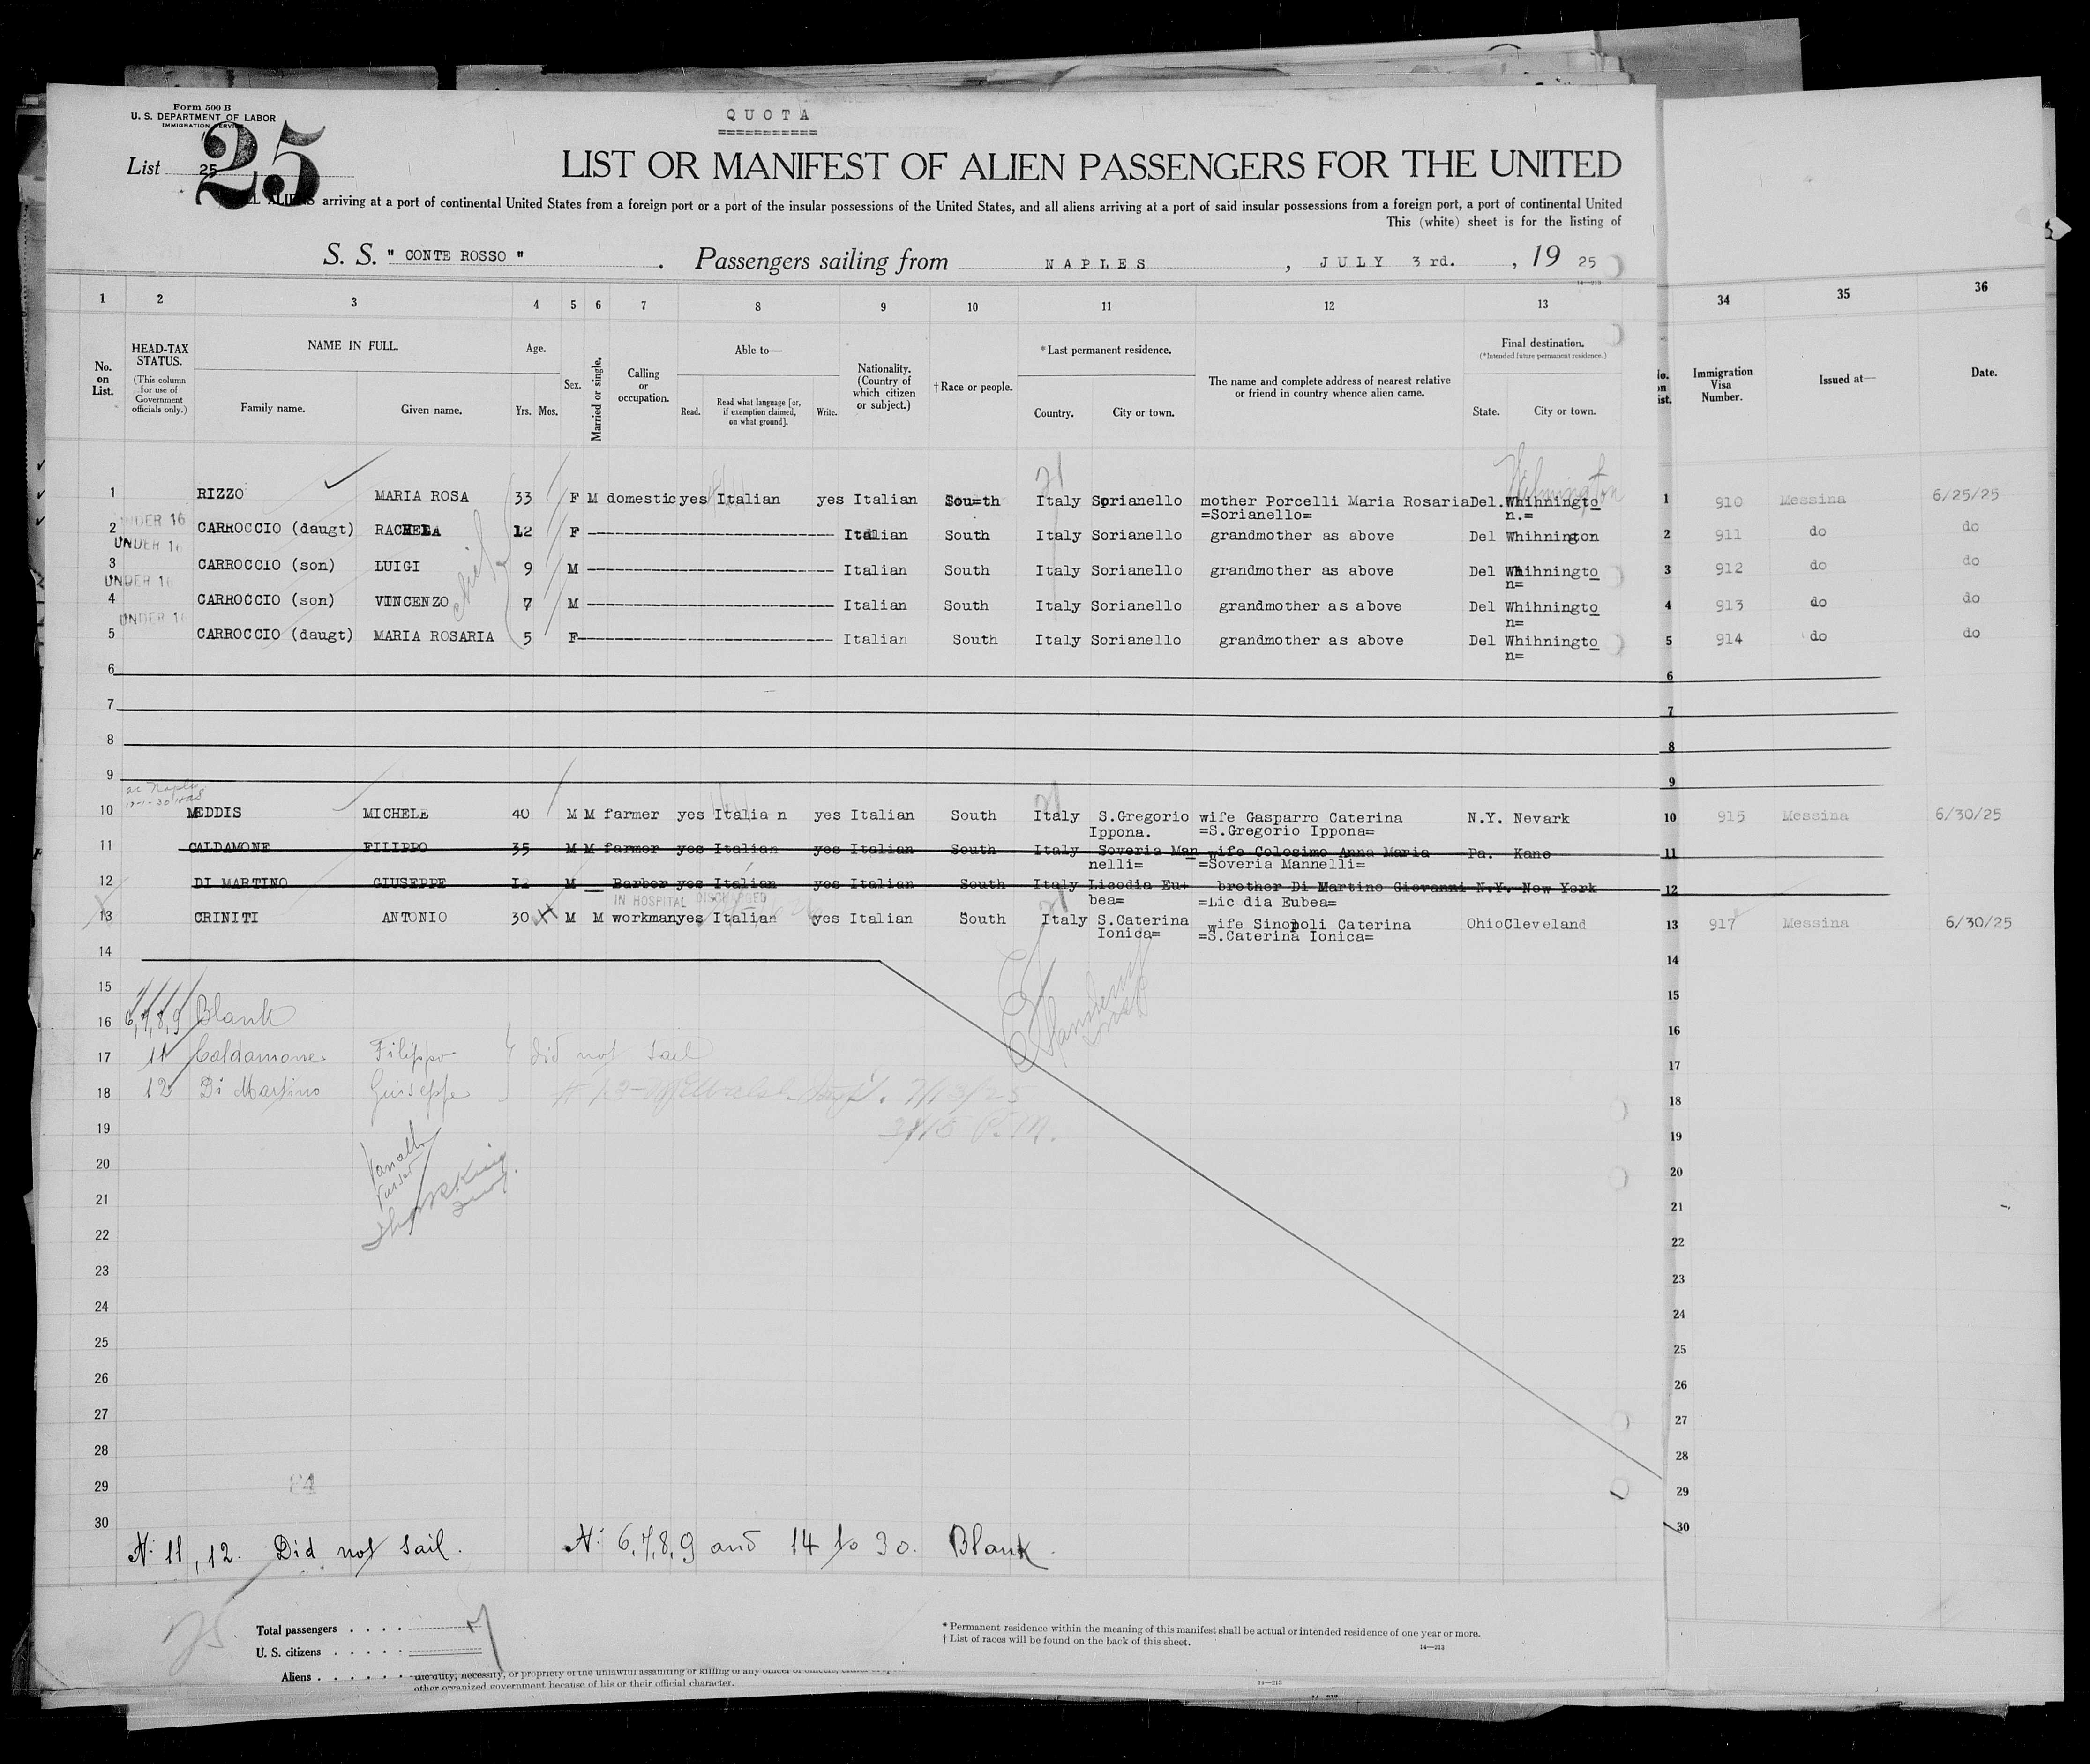 Form 500 B
U. S. DEPARTMENT OF LABOR
IMMIGRATION SERVICE
QUOTA
List 25
25
LIST OR MANIFEST OF ALIEN PASSENGERS FOR THE UNITED
arriving at a port of continental United States from a foreign port or a port of the insular possessions of the United States, and all aliens arriving at a port of said insular possessions from a foreign port, a port of continental United
This (white) sheet is for the listing of
S. S. " CONTE ROSSO " . Passengers sailing from NAPLES , JULY 3rd. , 19 25
14—213
1 2 3 4 5 6 7 8 9 10 11 12 13 34 35 36
No. on List.
HEAD-TAX STATUS.
(This column for use of Government officials only.)
NAME IN FULL.
Family name. Given name.
Age.
Yrs. Mos.
Sex.
Married or single.
Calling or occupation.
Able to—
Read. Read what language [or, if exemption claimed, on what ground]. Write.
Nationality. (Country of which citizen or subject.)
† Race or people.
* Last permanent residence.
Country. City or town.
The name and complete address of nearest relative or friend in country whence alien came.
Final destination.
(* Intended future permanent residence.)
State. City or town.
Immigration Visa Number.
Issued at—
Date.
Wilmington
1 RIZZO MARIA ROSA 33 F M domestic yes Italian yes Italian South Italy Sorianello mother Porcelli Maria Rosaria Del. Whihningto 1 910 Messina 6/25/25
=Sorianello= n.=
UNDER 16
2 CARROCCIO (daugt) RACHELA 12 F Italian South Italy Sorianello grandmother as above Del Whihnington 2 911 do do
UNDER 16
3 CARROCCIO (son) LUIGI 9 M Italian South Italy Sorianello grandmother as above Del Whihningto 3 912 do do
n=
UNDER 16
4 CARROCCIO (son) VINCENZO 7 M Italian South Italy Sorianello grandmother as above Del Whihningto 4 913 do do
n=
UNDER 16
5 CARROCCIO (daugt) MARIA ROSARIA 5 F Italian South Italy Sorianello grandmother as above Del Whihningto 5 914 do do
n=
6 6
7 7
8 8
9 9
10 MEDDIS MICHELE 40 M M farmer yes Italia n yes Italian South Italy S.Gregorio wife Gasparro Caterina N.Y. Nevark 10 915 Messina 6/30/25
Ippona. =S.Gregorio Ippona=
11 CALDAMONE FILIPPO 35 M M farmer yes Italian yes Italian South Italy Soveria Man wife Colosimo Anna Maria Pa. Kane 11
nelli= =Soveria Mannelli=
12 DI MARTINO GIUSEPPE M Barber yes Italian yes Italian South Italy Licodia Eu+ brother Di Martino Giovanni N.Y. New York 12
bea= =Lic dia Eubea=
IN HOSPITAL DISCHARGED
13 CRINITI ANTONIO 30 M M workman yes Italian yes Italian South Italy S.Caterina wife Sinopoli Caterina Ohio Cleveland 13 917 Messina 6/30/25
Ionica= =S.Caterina Ionica=
14 14
15 15
16 6,7,8,9 Blank 16
17 11 Caldamone Filippo did not sail 17
18 12 Di Martino Giuseppe 7/13/25 18
19 P.M. 19
20 20
21 21
22 22
23 23
24 24
25 25
26 26
27 27
28 28
29 29
30 30
N: 11, 12. Did not sail. N: 6,7,8,9 and 14 to 30. Blank.
25
Total passengers . . . . 7
U. S. citizens . . . . .
Aliens . . . . . .
* Permanent residence within the meaning of this manifest shall be actual or intended residence of one year or more.
† List of races will be found on the back of this sheet.
14—213
the duty, necessity, or propriety of the unlawful assaulting or killing of any officer or officers,
other organized government because of his or their official character.
14—213